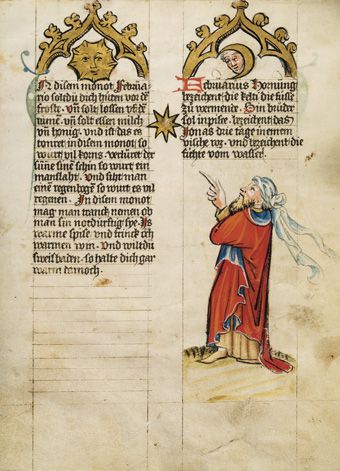 In disem monot Februa
rio soltdu dich hüten vor de
froste. vn̄ solt lossen vf de
dumē. vn̄ solt essen milch
vn̄ honig. vnd ist das es
donret in disem monot so
wurt vil korns. verküret der
sune sinē schin so wurt ein
manslaht. Vnd siht man
einē regenbogē so wurt es vil
regenen. In disem monot
mag man tranck nemen ob
man sin notdurftig sye. Is
warme spise vnd trinck
warmen win. Vnd wiltdu
sweisbaden. so halte dich gar
warm darnoch.
Februarius Hornung
bezeichent die kelti die füsse
zu wermende. Sin
sol in pisce. bezeichent das
Jonas drie tage in einem
vische. vnd bezeichent die
fühte vom wasser.